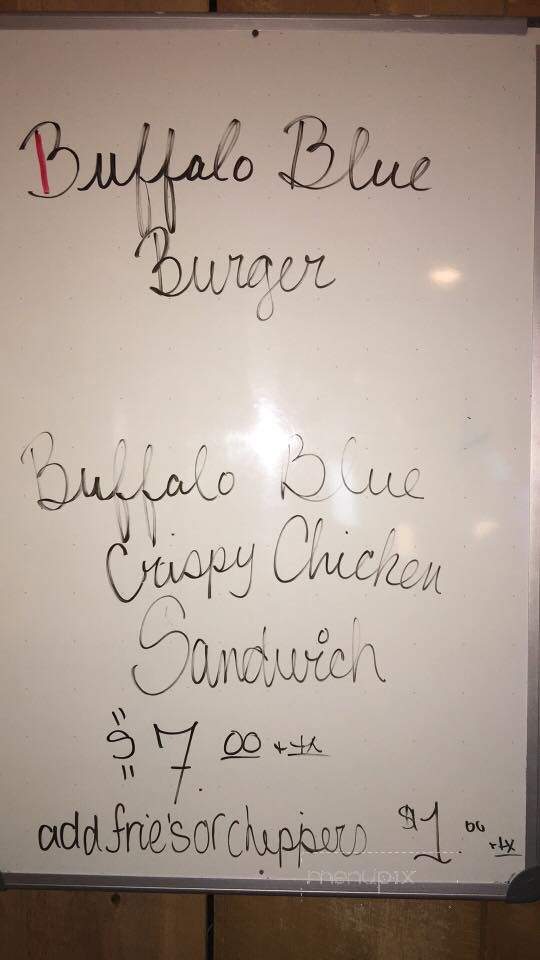 Buffalo Blue
Burger
Buffalo Blue
Crispy Chicken
Sandwich
$7.00 + tx
add frie's or cheppers $1.00 + tx
menupix